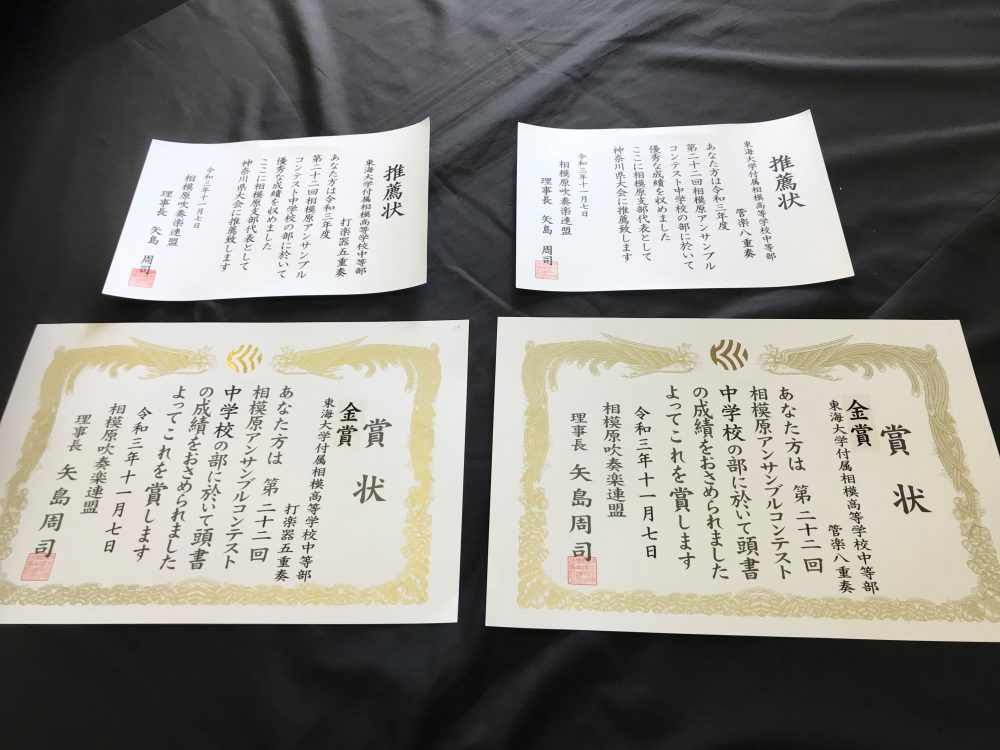 推薦状
東海大学付属相模高等学校中等部
打楽器五重奏
あなた方は令和三年度
第二十二回相模原アンサンブル
コンテスト中学校の部に於いて
優秀な成績を収めました
ここに相模原支部代表として
神奈川県大会に推薦致します
令和三年十一月七日
相模原吹奏楽連盟
理事長 矢島 周司
推薦状
東海大学付属相模高等学校中等部
管楽八重奏
あなた方は令和三年度
第二十二回相模原アンサンブル
コンテスト中学校の部に於いて
優秀な成績を収めました
ここに相模原支部代表として
神奈川県大会に推薦致します
令和三年十一月七日
相模原吹奏楽連盟
理事長 矢島 周司
賞状
金賞
東海大学付属相模高等学校中等部
打楽器五重奏
あなた方は 第二十二回
相模原アンサンブルコンテスト
中学校の部に於いて頭書
の成績をおさめられました
よってこれを賞します
令和三年十一月七日
相模原吹奏楽連盟
理事長 矢島周司
賞状
金賞
東海大学付属相模高等学校中等部
管楽八重奏
あなた方は 第二十二回
相模原アンサンブルコンテスト
中学校の部に於いて頭書
の成績をおさめられました
よってこれを賞します
令和三年十一月七日
相模原吹奏楽連盟
理事長 矢島周司